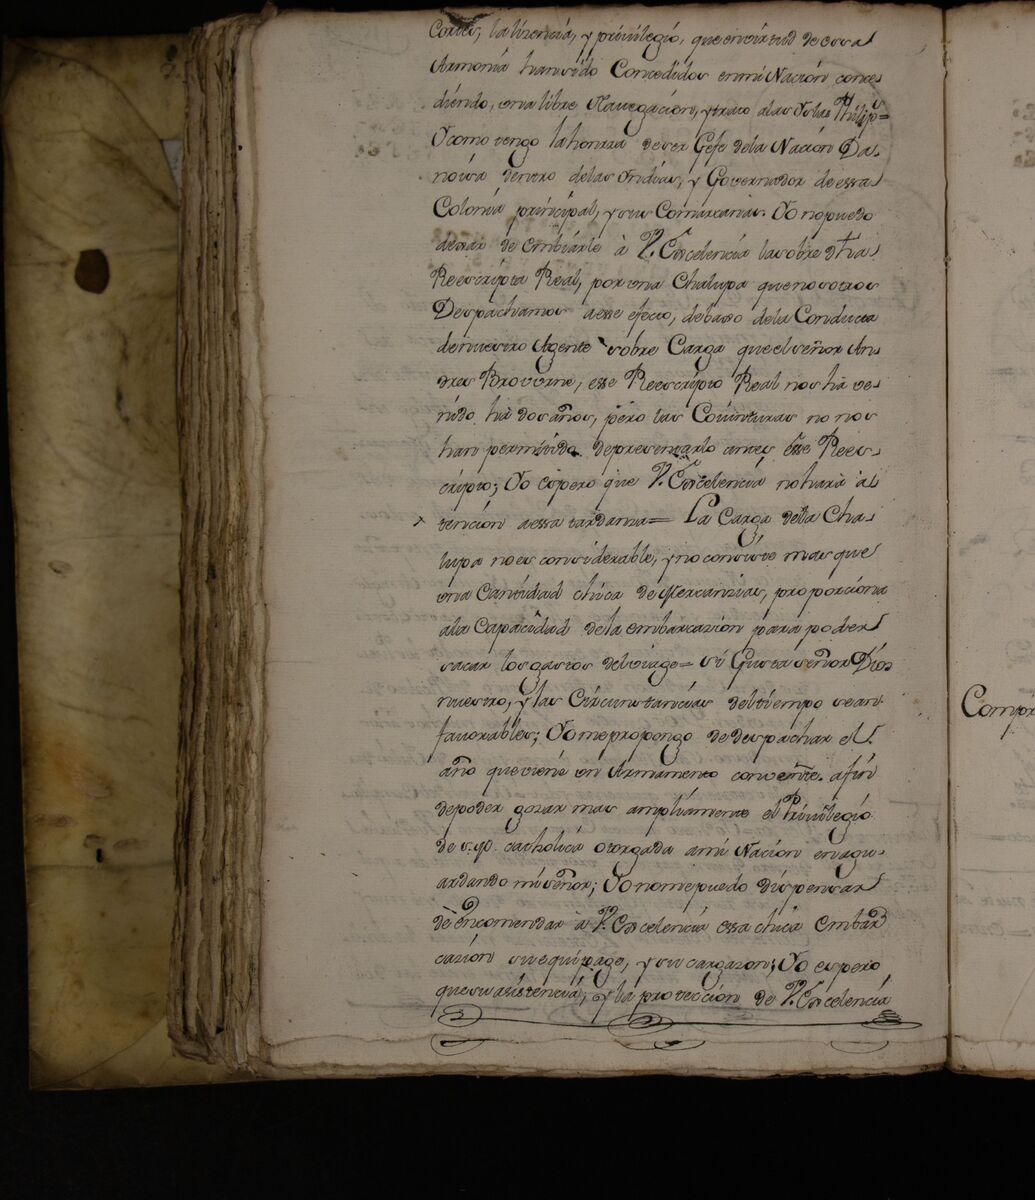 Cortes, la lizencia, y privilegio, que en virtud de essa
Armonia han sido Concedidos en mi Nación conce-
diendo, una libre Navegacion, y trato a las Yslas Philip.s=
Yo como tengo la honrra de ser Gefe de la Nación Da-
noisa dentro de las Yndias, y Governador de essa
Colonia principal, y sus Comarcanias. Yo no puedo
dexar de embiarle à V. Excelencia la sobre dha
Reescripta Real, por una Chalupa que nosotros
Despachamos a esse efecto, debaxo de la Conducta
de nuestro Agente sobre Carga que el señor An
dres Brouvne, esse Reescripto Real nos ha ve-
nido ha dos años, pero las Coiunturas no nos
han permitido de presentarlo antes esse Rees-
cripto; Yo espero que V. Excelencia no hará a-
tencion a essa tardanza= La Carga de la Cha-
lupa no es considerable, y no consiste mas que
una Cantidad chica de Merxanzias, proporciona
a la Capacidad de la embarcazion para poder
sacar los gastos del viage= si Gusta señor Dios
nuestro, y las Circunstancias del tiempo sean
favorables; Yo me propongo de despachar el
año que viene un Armamento convente. afin
de poder gozar mas ampliamente el Privilegio
de S.M. catholica otorgada a mi Nacion en agu-
ardando mi señor; Yo no me puedo dispensar
de encomendar à V. Excelencia essa chica Embar
cazion su equipage, y su cargazon; Yo espero
que su asistencia, y la proteccion de V. Excelencia
Compr